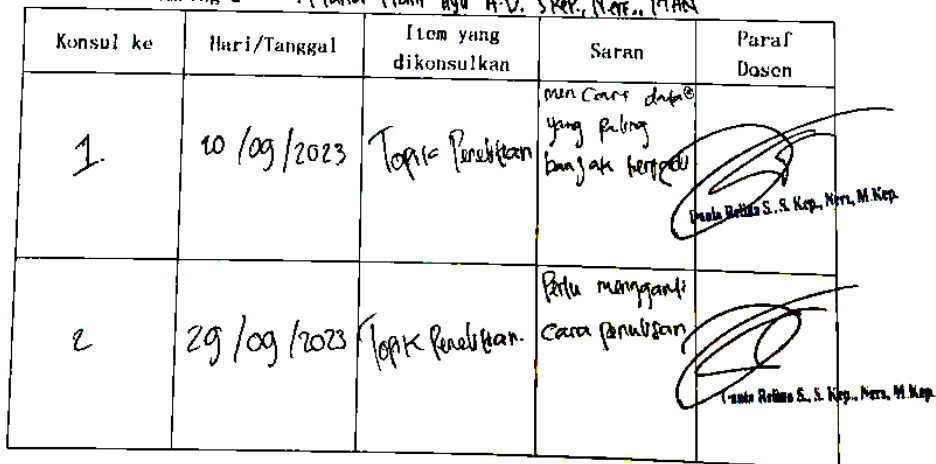 Ayu A.V. S.Kep., Ners., MAN
Konsul ke
Hari/Tanggal
Item yang
dikonsulkan
Saran
Paraf
Dosen
1.
10 /09 /2023
Topik Penelitian
mencari data²
yang paling
banyak terjadi
S., S. Kep., Ners, M.Kep.
2
29 /09 /2023
Topik Penelitian.
Perlu mengganti
Cara penulisan
S., S. Kep., Ners, M.Kep.